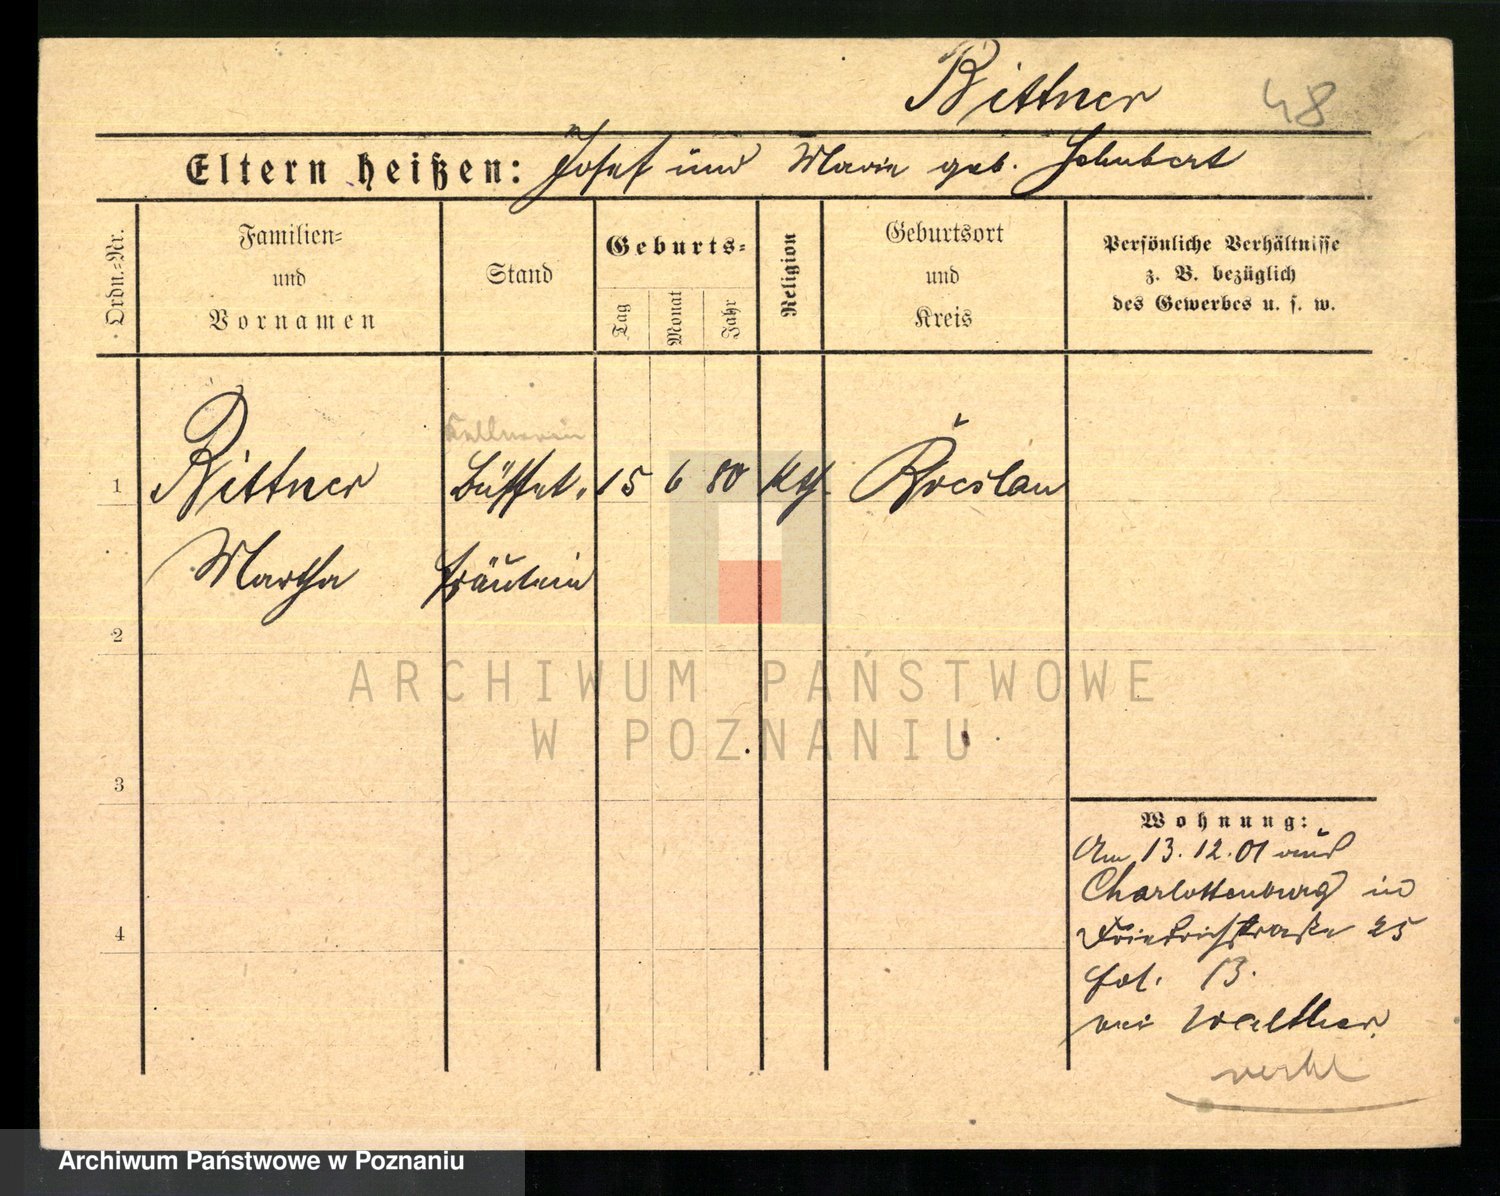 Bittner 48
Eltern heißen: Josef und Marie geb. Schubert
Ordn.=Nr.
Familien=
und
Vornamen
Stand
Geburts=
Tag
Monat
Jahr
Religion
Geburtsort
und
Kreis
Persönliche Verhältnisse
z. B. bezüglich
des Gewerbes u. s. w.
Kellnerin
1 Bittner Büffet. 15 6 80 kth. Breslau
Martha fräulein
2
ARCHIWUM PAŃSTWOWE
W POZNANIU
3
Wohnung:
Am 13.12.01 aus
Charlottenburg in
Friedrichstraße 25
13.
bei Walther.
Archiwum Państwowe w Poznaniu
4